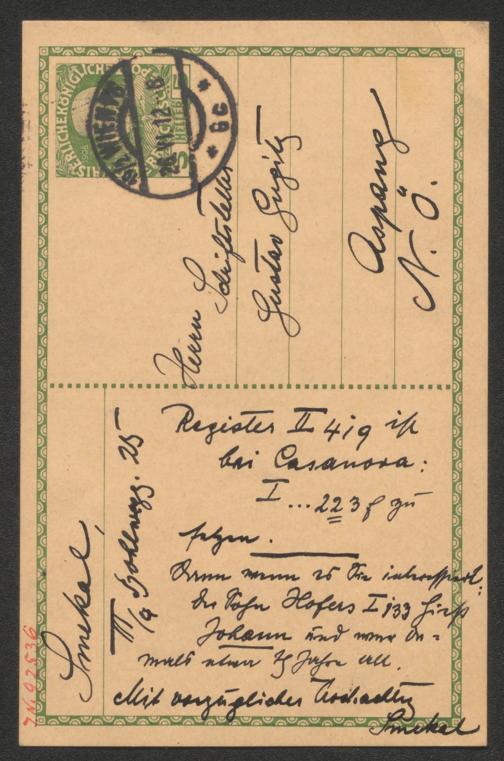 KAISERLICHE KÖNIGLICHE
WIEN
VI 12
6c
Herrn Schriftsteller
Gustav Gugitz
Aspang
N. Ö.
Smekal,
III/4 25
Register II 419 ist
bei Casanova:
I ... 223 f zu
setzen.
Dann wenn es Sie interessiert:
Der Sohn Hofers I 133 hieß
Johann und war da-
mals etwa Jahre alt.
Mit vorzüglicher Hochachtung
Smekal
I.N. 92536